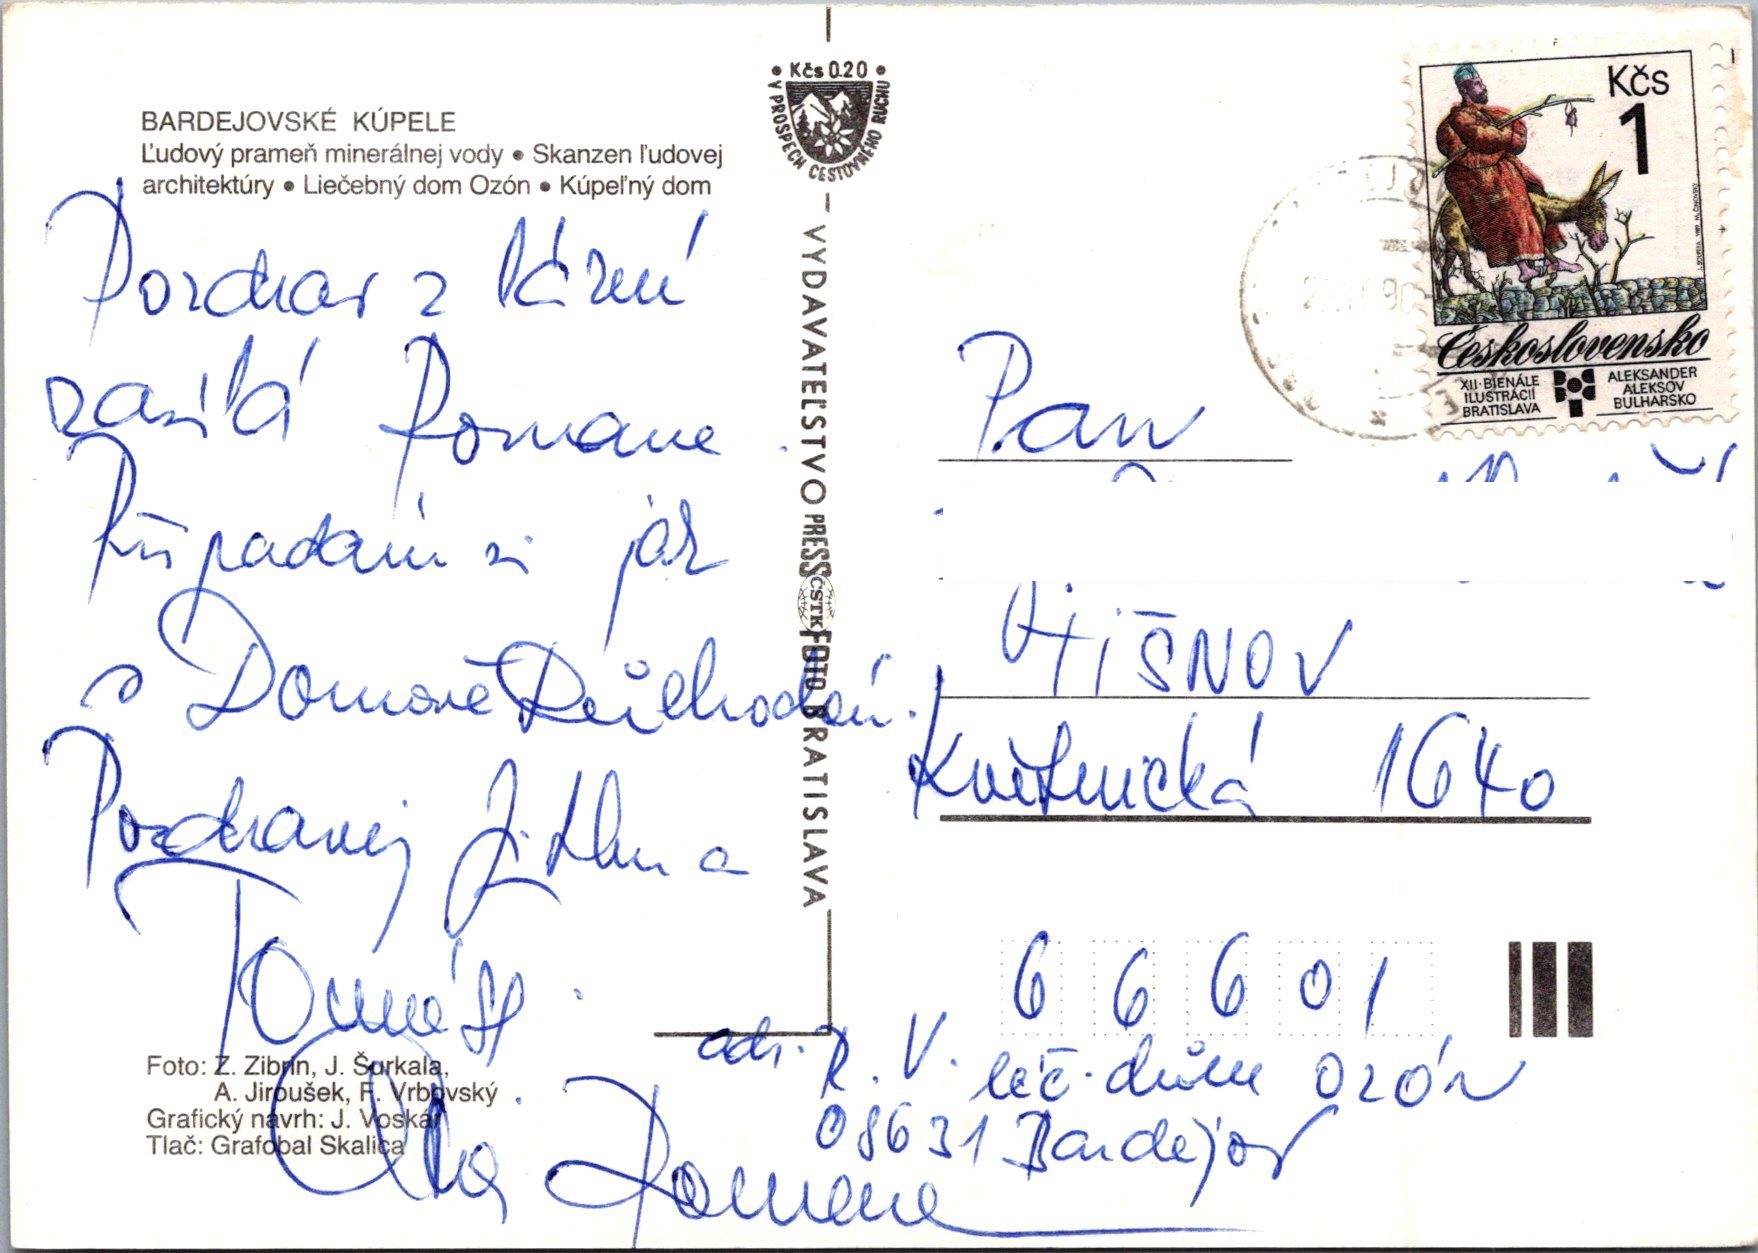 BARDEJOVSKÉ KÚPELE
Ľudový prameň minerálnej vody • Skanzen ľudovej
architektúry • Liečebný dom Ozón • Kúpeľný dom
Pozdrav z lázní
zasílá Romana.
Připadám si jak
v Domově Důchodců.
Pozdravuj Jitku a
Tomáše.
Romana
Foto: Z. Zibrín, J. Šurkala,
A. Jiroušek, F. Vrbovský
Grafický návrh: J. Voskár
Tlač: Grafobal Skalica
• Kčs 0.20 •
V PROSPECH CESTOVNÉHO RUCHU
VYDAVATEĽSTVO PRESSFOTO BRATISLAVA
ČSTK
Kčs
1
Československo
XII. BIENÁLE
ILUSTRÁCIÍ
BRATISLAVA
ALEKSANDER
ALEKSOV
BULHARSKO
Pan
TIŠNOV
Květnická 1640
666 01
adr. R. V. léč. dům Ozón
08631 Bardejov